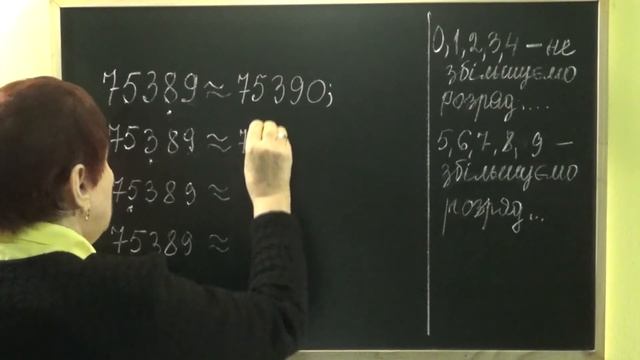 75389 ≈ 75390;
75389 ≈ 7
75389 ≈
75389 ≈
0,1,2,3,4 – не
збільшуємо
розряд....
5,6,7,8,9 –
збільшуємо
розряд...